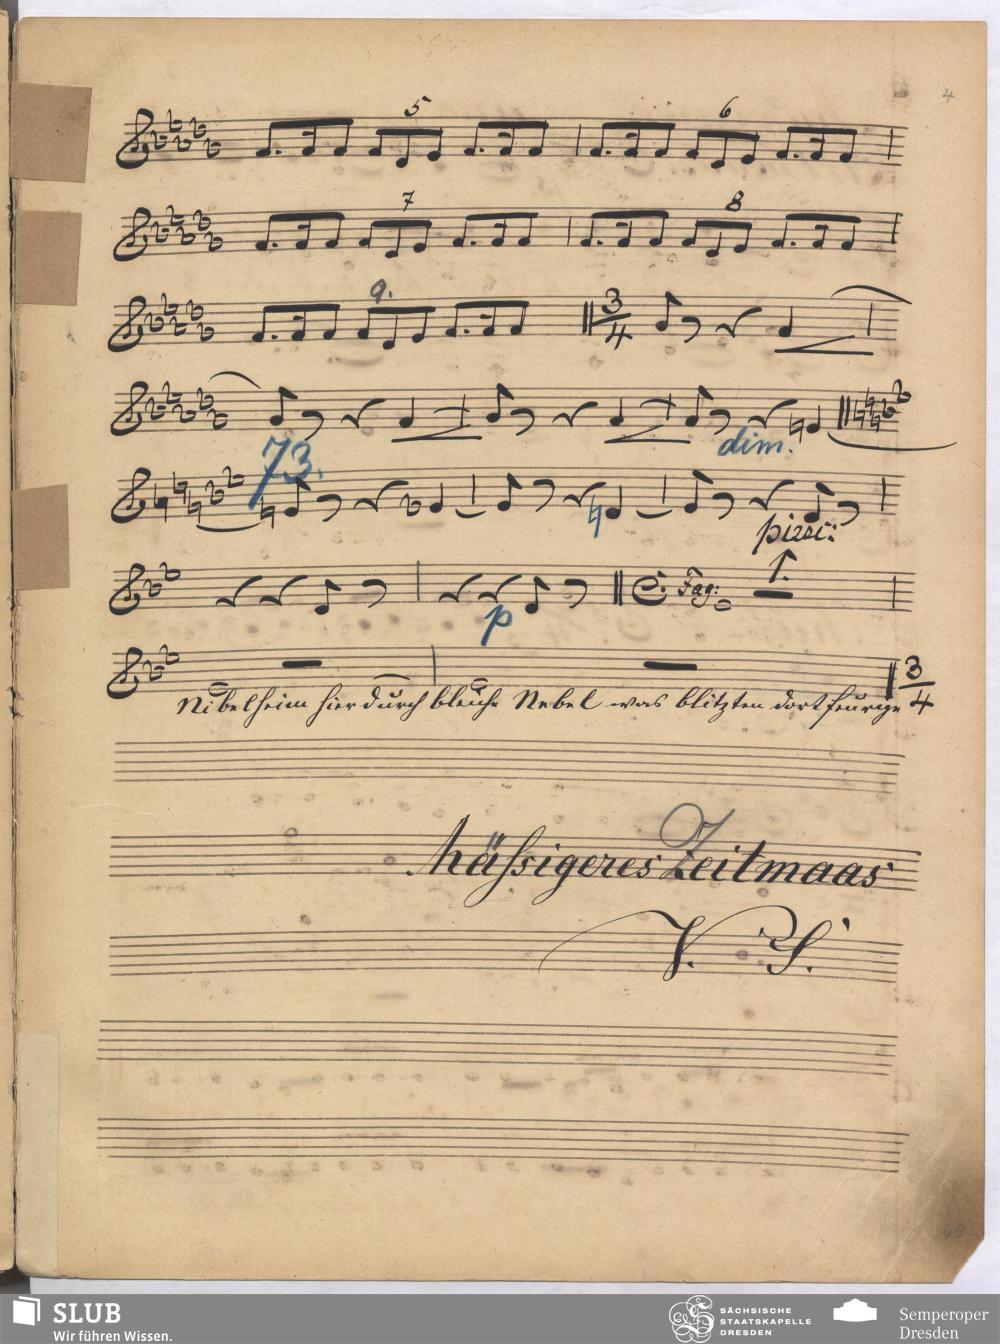 4
5
6
7
8
9.
3
4
dim.
73.
pizzi:
1.
Fag:
p
3
4
Nibelheim hier durch bleiche Nebel was blitzten dort feurige
Mässigeres Zeitmaas
V. S.
46
SLUB
Wir führen Wissen.
SÄCHSISCHE
STAATSKAPELLE
DRESDEN
Semperoper
Dresden